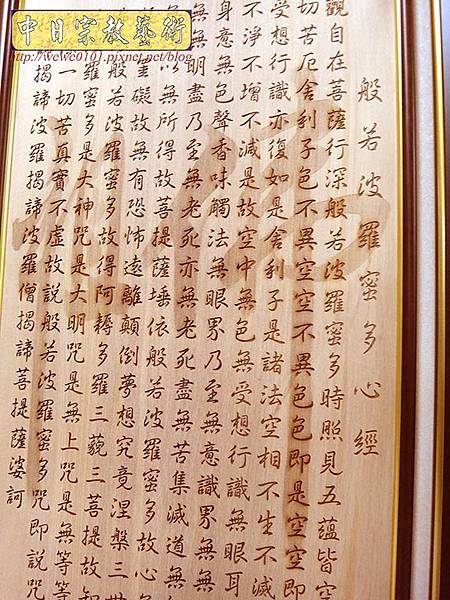 中日宗教藝術
http://wewe0101.pixnet.net/blog
般若波羅蜜多心經
觀自在菩薩行深般若波羅蜜多時照見五蘊皆空
切苦厄舍利子色不異空空不異色色即是空空即
受想行識亦復如是舍利子是諸法空相不生不滅
不淨不增不減是故空中無色無受想行識無眼耳
身意無色聲香味觸法無眼界乃至無意識界無無
無無明盡乃至無老死亦無老死盡無苦集滅道無
以無所得故菩提薩埵依般若波羅蜜多故心
罣礙故無有恐怖遠離顛倒夢想究竟涅槃三世
般若波羅蜜多故得阿耨多羅三藐三菩提故知
羅蜜多是大神咒是大明咒是無上咒是無等等
一切苦真實不虛故說般若波羅蜜多咒即說咒
揭諦波羅揭諦波羅僧揭諦菩提薩婆訶